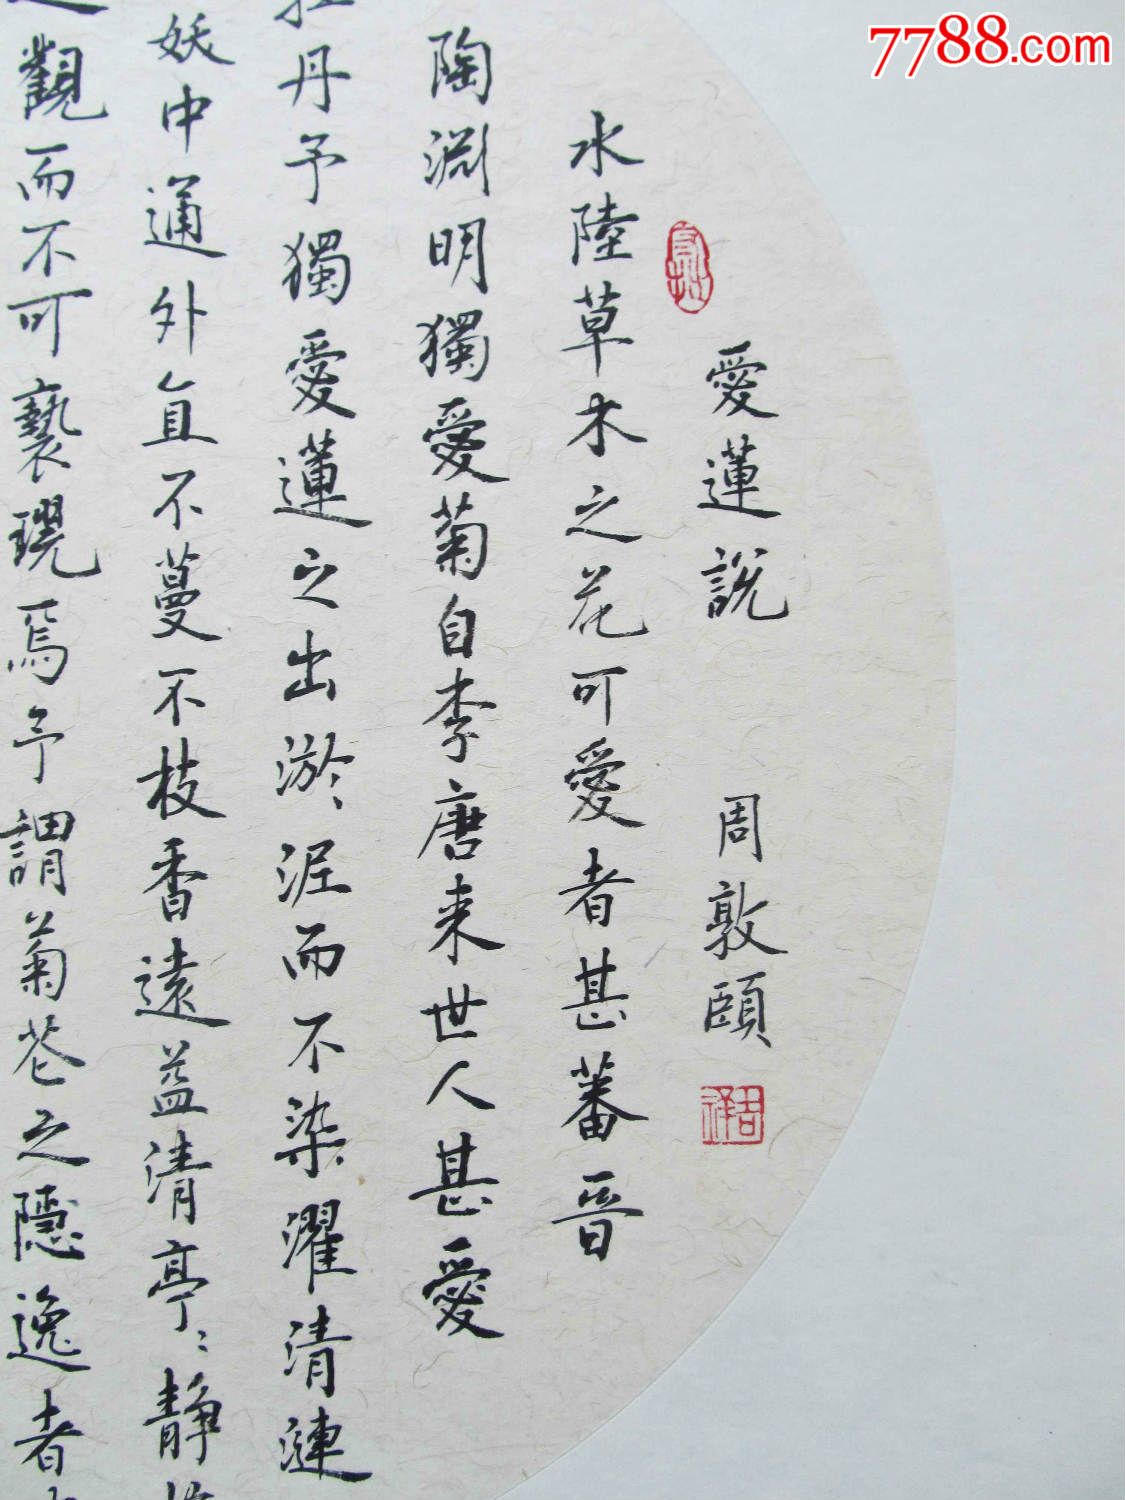 愛蓮說 周敦頤
水陸草木之花可愛者甚蕃晉
陶渊明獨愛菊自李唐来世人甚愛
丹予獨愛蓮之出淤泥而不染濯清漣
妖中通外直不蔓不枝香遠益清亭〻静
觀而不可褻翫焉予謂菊花之隱逸者
7788.com